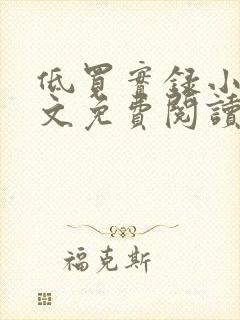 低買實錄小
文免費閱讀
福克斯